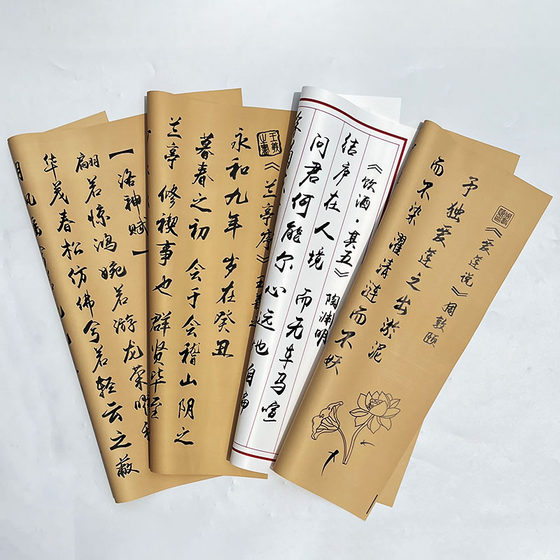 【洛神赋】
翩若惊鸿婉若游龙荣曜
华茂春松仿佛兮若轻云之蔽
月
《兰亭序》王羲之
永和九年 岁在癸丑
暮春之初 会于会稽山阴之
兰亭 修禊事也 群贤毕至
《饮酒·其五》陶渊明
结庐在人境 而无车马喧
问君何能尔 心远地自偏
《爱莲说》周敦颐
予独爱莲之出淤泥
而不染 濯清涟而不妖